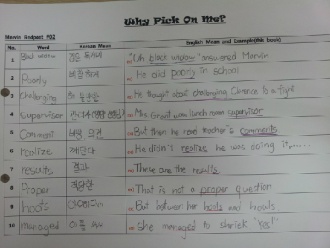 Why Pick On Me?
Marvin Redpost #02
No. Word Korean Mean English Mean and Example(in this book)
1 Oh black widow answered Marvin
2 Poorly He did poorly in school
3 challenging He thought about challenging Clarence to a fight
4 supervisor Mrs Grant was lunch room supervisor
5 Comment But then he read teacher's comments
6 realize 깨닫다 He didn't realize he was doing it......
7 results 결과 These are the results
8 Proper 적당한 That is not a proper question
9 hoots But between her hoots and howls
10 managed She managed to shriek "Yes!"